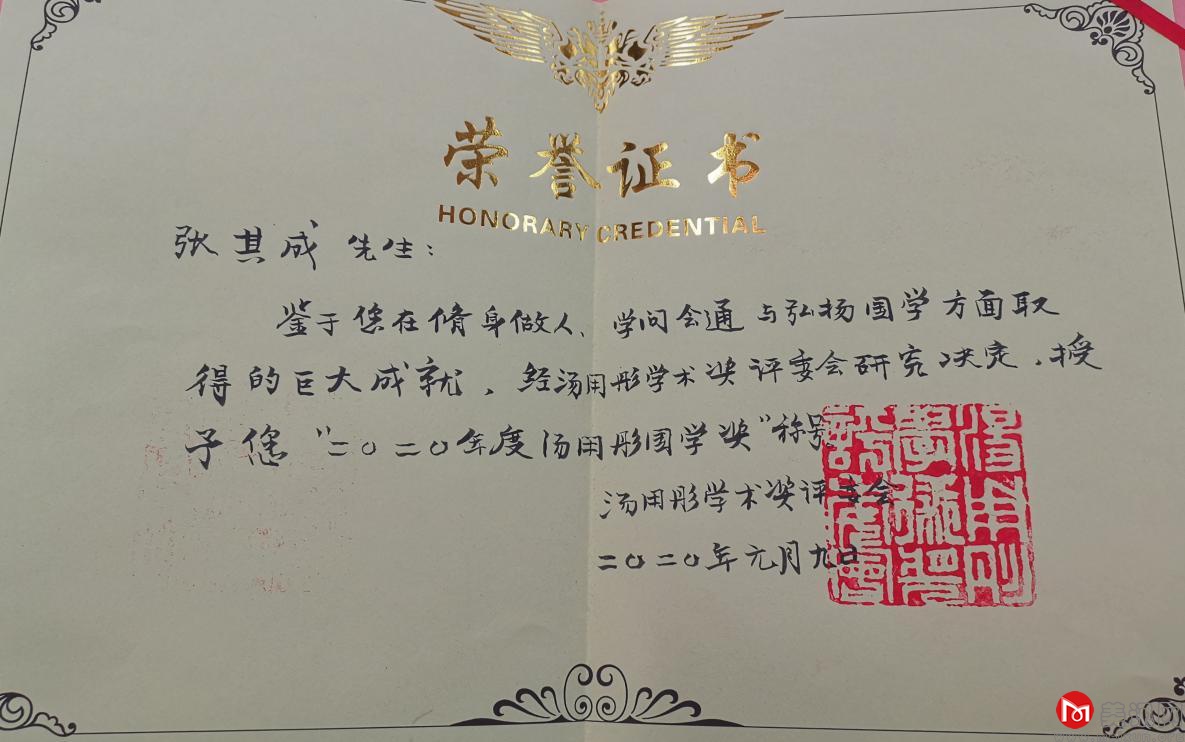 荣誉证书
HONORARY CREDENTIAL
张其成 先生：
鉴于您在修身做人、学问会通与弘扬国学方面取
得的巨大成就，经汤用彤学术奖评委会研究决定，授
予您“二〇二〇年度汤用彤国学奖”称号
汤用彤学术奖评委会
二〇二〇年元月九日